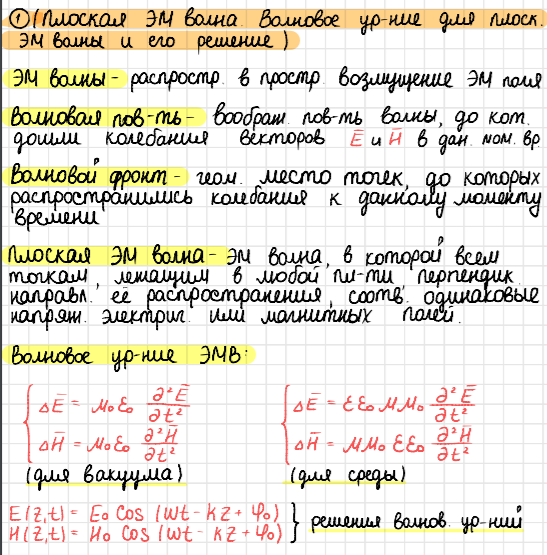 ① (Плоская ЭМ волна. Волновое ур-ние для плоск.
ЭМ волны и его решение)
ЭМ волны - распростр. в простр. возмущение ЭМ поля
Волновая пов-ть - воображ. пов-ть волны, до кот.
дошли колебания векторов E̅ и H̅ в дан. мом. вр.
Волновой фронт - геом. место точек, до которых
распространились колебания к данному моменту
времени
Плоская ЭМ волна - ЭМ волна, в которой всем
точкам, лежащим в любой пл-ти перпендик.
направл. её распространения, соотв. одинаковые
напряж. электрич. или магнитных полей.
Волновое ур-ние ЭМВ:
{ ΔE̅ = μ₀ε₀ ∂²E̅/∂t²
ΔH̅ = μ₀ε₀ ∂²H̅/∂t²
(для вакуума)
{ ΔE̅ = εε₀μμ₀ ∂²E̅/∂t²
ΔH̅ = μμ₀εε₀ ∂²H̅/∂t²
(для среды)
E(z,t) = E₀ cos (ωt - kz + φ₀)
H(z,t) = H₀ cos (ωt - kz + φ₀) } решения волнов. ур-ний